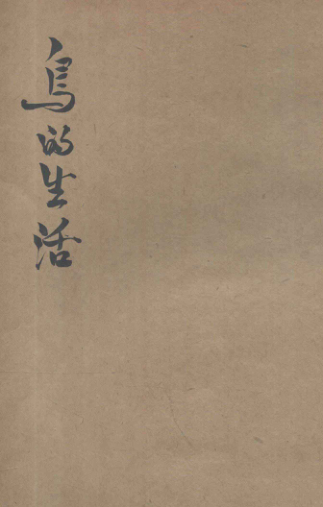 鳥的生活